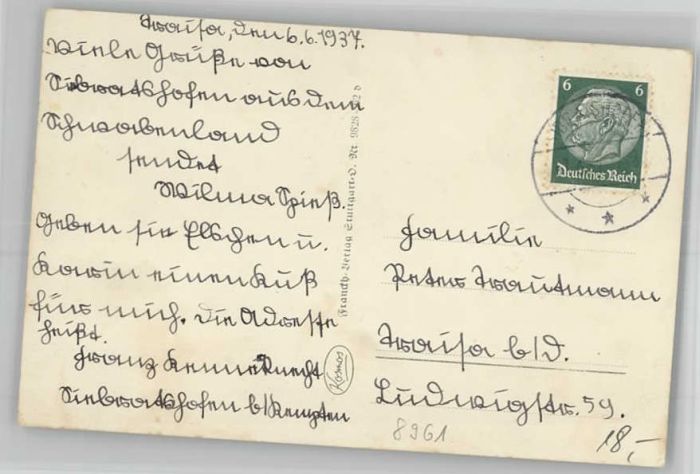 Traisa, den 6.6.1937.
Viele Grüße von
Siebratshofen aus dem
Schwabenland
sendet
Wilma Spieß.
Geben sie Elschen u.
Karin einen Kuß
für mich. Die Adresse
heißt.
Franz Kenneknecht
Siebratshofen b/Kempten
Franckh-Verlag Stuttgart-O. Nr.
Kosmos
6 6
Deutsches Reich
Familie
Peter Trautmann
Traisa b/D.
Ludwigstr. 59.
8961
18,-